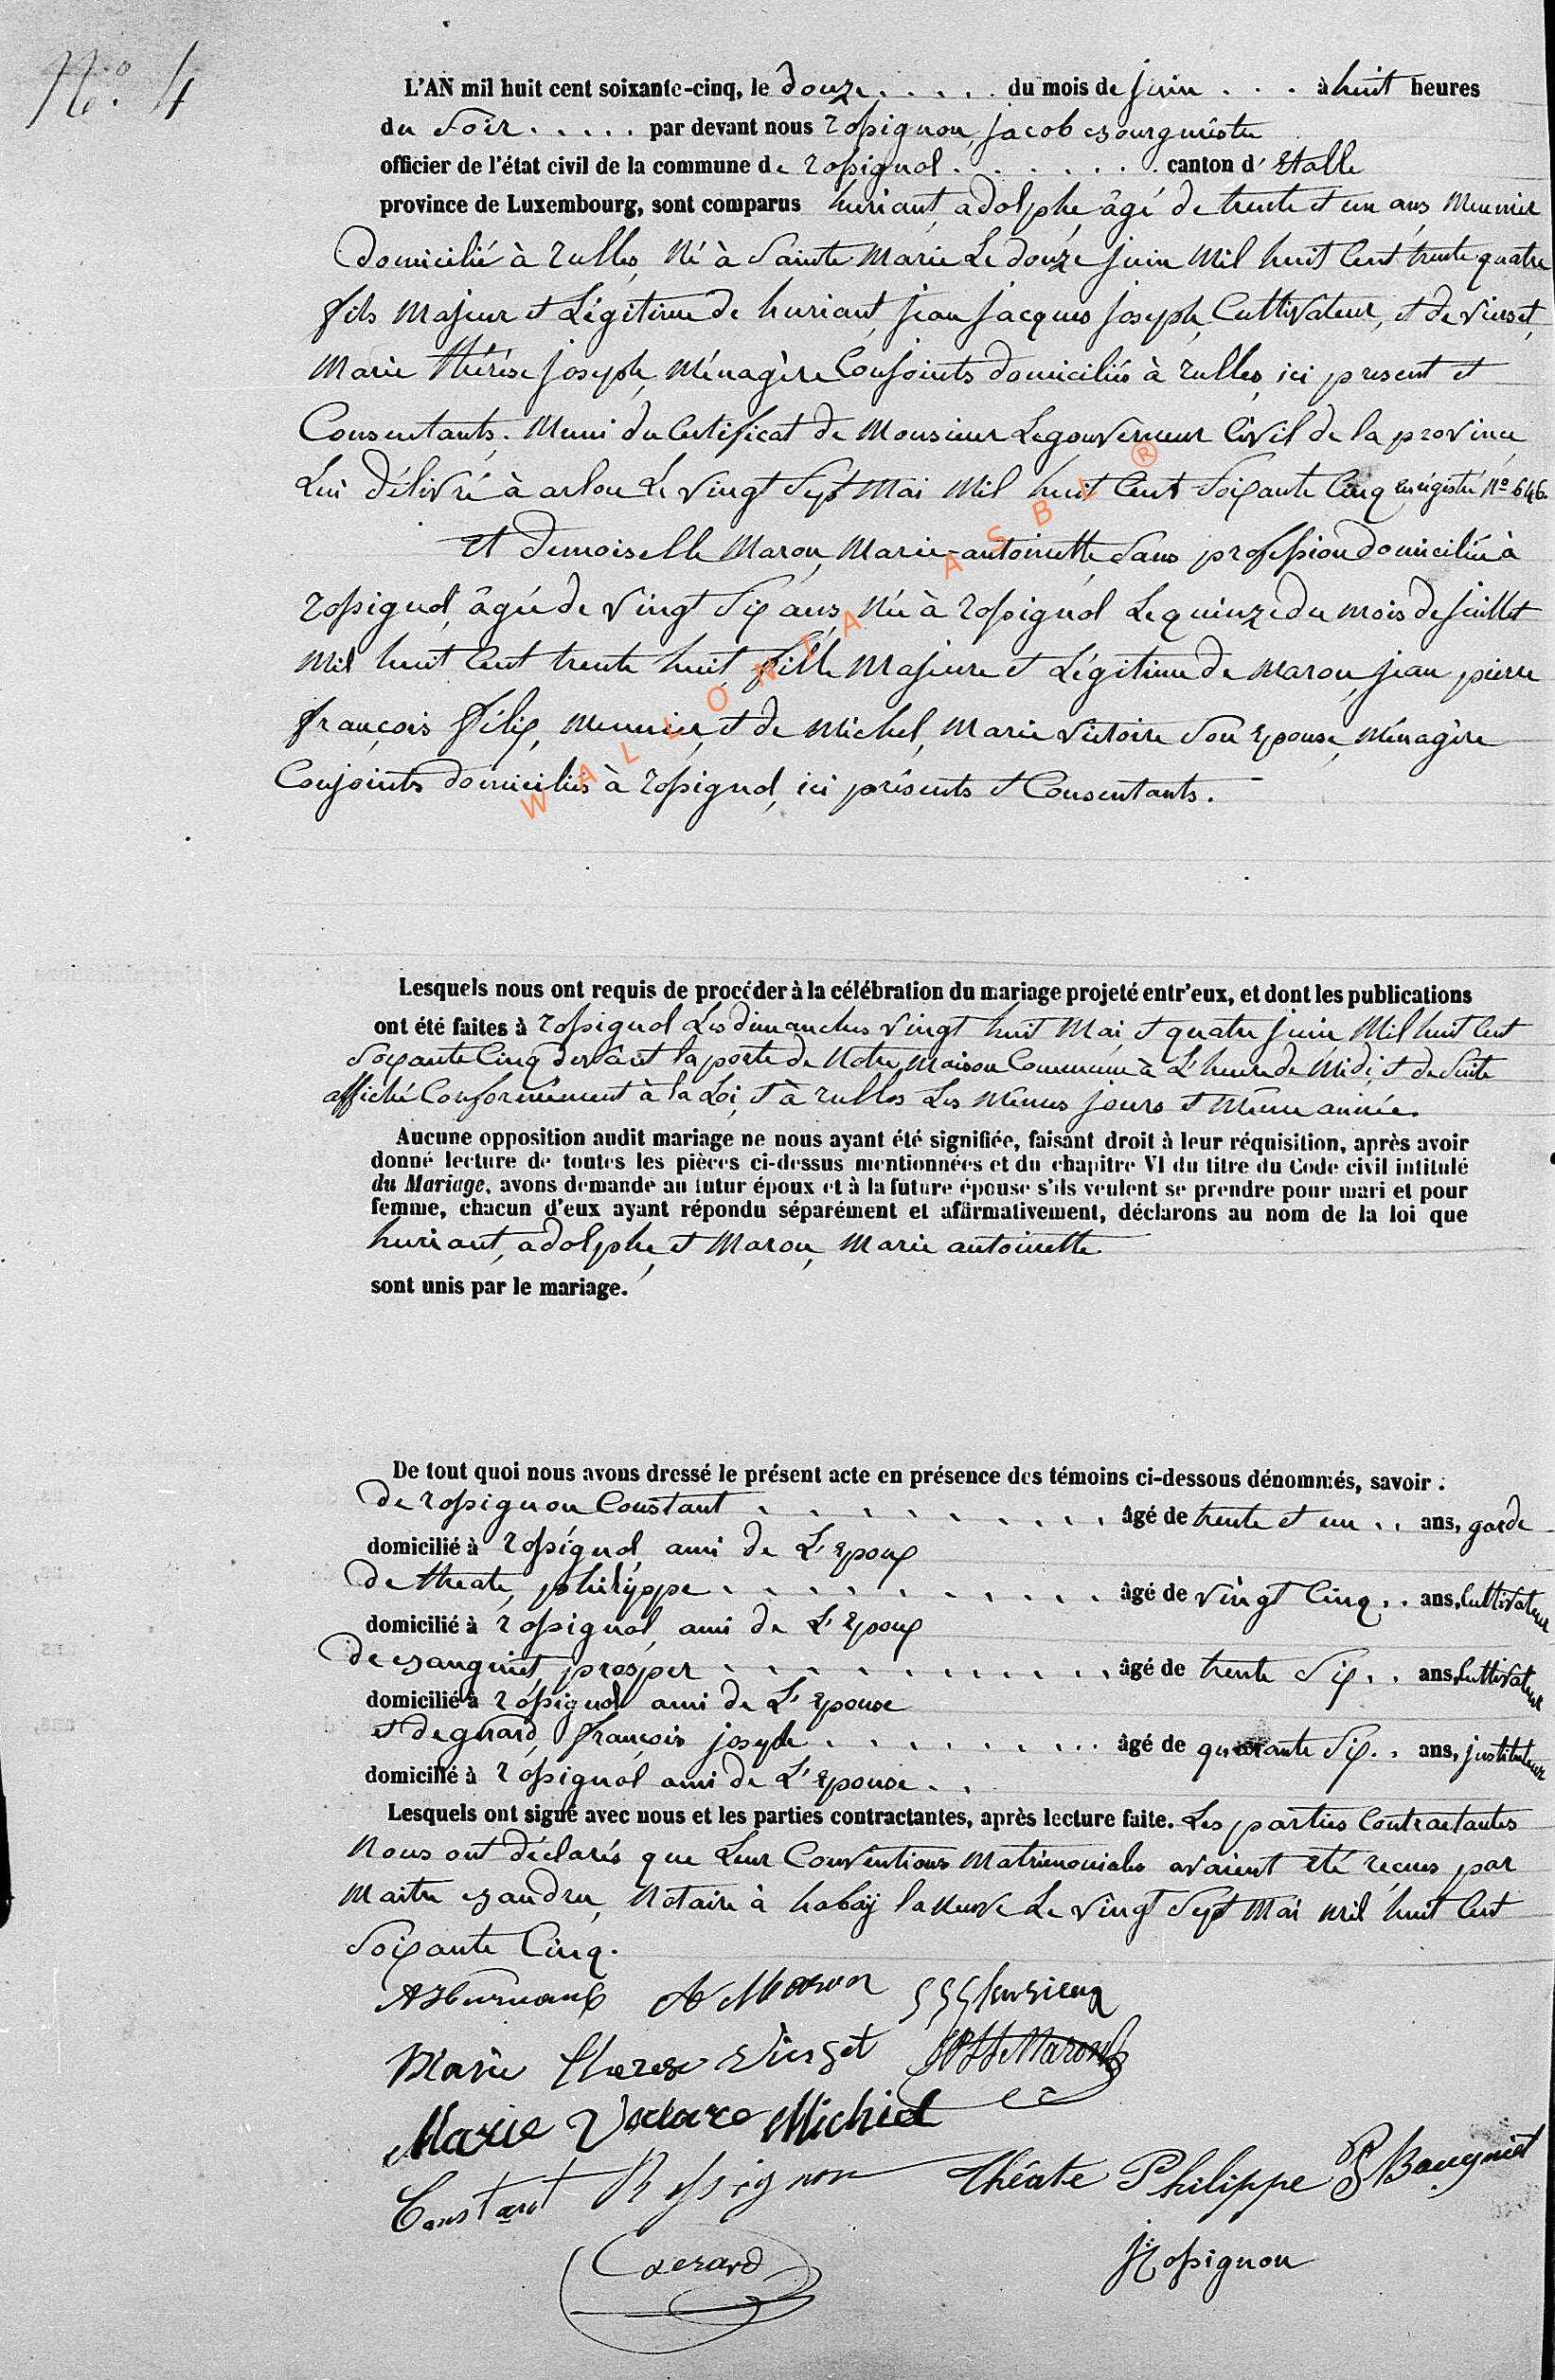 No. 4
L'AN mil huit cent soixante-cinq, le douze . . . . . du mois de juin . . . à huit heures
du Soir . . . . . par devant nous rossignon, jacob Bourgmestre
officier de l'état civil de la commune de rossignol . . . . . . . canton d' Etalle
province de Luxembourg, sont comparus huriaut, adolphe, âgé de trente et un ans, Meunier
Domicilié à rulles, Né à Sainte Marie Le douze juin Mil huit Cent trente quatre
fils Majeur et Légitime de huriaut, jean jacques joseph, Cultivateur, et de vierset,
Marie thérèse joseph, Ménagère Conjoints domiciliés à rulles, ici present et
Consentants. Muni du Certificat de Monsieur Legouverneur Civil de la province
Lui délivré à arlon Le vingt Sept Mai Mil huit Cent Soixante Cinq enrégistré No 646.
Et demoiselle Maron, Marie-antoinette, Sans profession domiciliée à
rossignol, âgée de vingt Six ans, Née à rossignol Le quinze du mois de juillet
Mil huit Cent trente huit, fille Majeure et Légitime de Maron, jean pierre
françois félix, Meunier, et de Michel, Marie victoire Son Epouse, Ménagère
Conjoints domiciliés à rossignol, ici présents et Consentants.
WALLONIA ASBL ®
Lesquels nous ont requis de procéder à la célébration du mariage projeté entr'eux, et dont les publications
ont été faites à rossignol Les dimanches vingt huit Mai et quatre juin Mil huit Cent
Soixante Cinq devânt la porte de Notre Maison Commune à L'heure de Midi, et de Suite
affiché Conformément à la Loi, et à rulles Les Mêmes jours et Même année.
Aucune opposition audit mariage ne nous ayant été signifiée, faisant droit à leur réquisition, après avoir
donné lecture de toutes les pièces ci-dessus mentionnées et du chapitre VI du titre du Code civil intitulé
du Mariage, avons demandé au futur époux et à la future épouse s'ils veulent se prendre pour mari et pour
femme, chacun d'eux ayant répondu séparément et affirmativement, déclarons au nom de la loi que
huriaut, adolphe, et Maron, Marie antoinette
sont unis par le mariage.
De tout quoi nous avons dressé le présent acte en présence des témoins ci-dessous dénommés, savoir :
De rossignon Constant . . . . . . . . . âgé de trente et un . . ans, garde
domicilié à rossignol, ami de L'Epoux
De theate, philippe . . . . . . . . . . âgé de vingt Cinq . . ans, Cultivateur
domicilié à rossignol, ami de L'Epoux
De Bauguiet, prosper . . . . . . . . . . âgé de trente Six . . ans, Cultivateur
domicilié à rossignol ami de L'Epouse
et De gérard, françois joseph . . . . . . . . . âgé de quarante Six . . ans, instituteur
domicilié à rossignol ami de L'Epouse . .
Lesquels ont signé avec nous et les parties contractantes, après lecture faite. Les parties Contractantes
Nous ont déclarés que Leur Conventions Matrimoniales avaient été reçues par
Maitre Baudru, Notaire à habaÿ la Neuve Le vingt Sept Mai mil huit Cent
Soixante Cinq.
A Huriaux A Maron
Marie therese vierset
Marie Michel
Constant Rossignon Théate Philippe P Bauguiet
Gerard J Rossignon